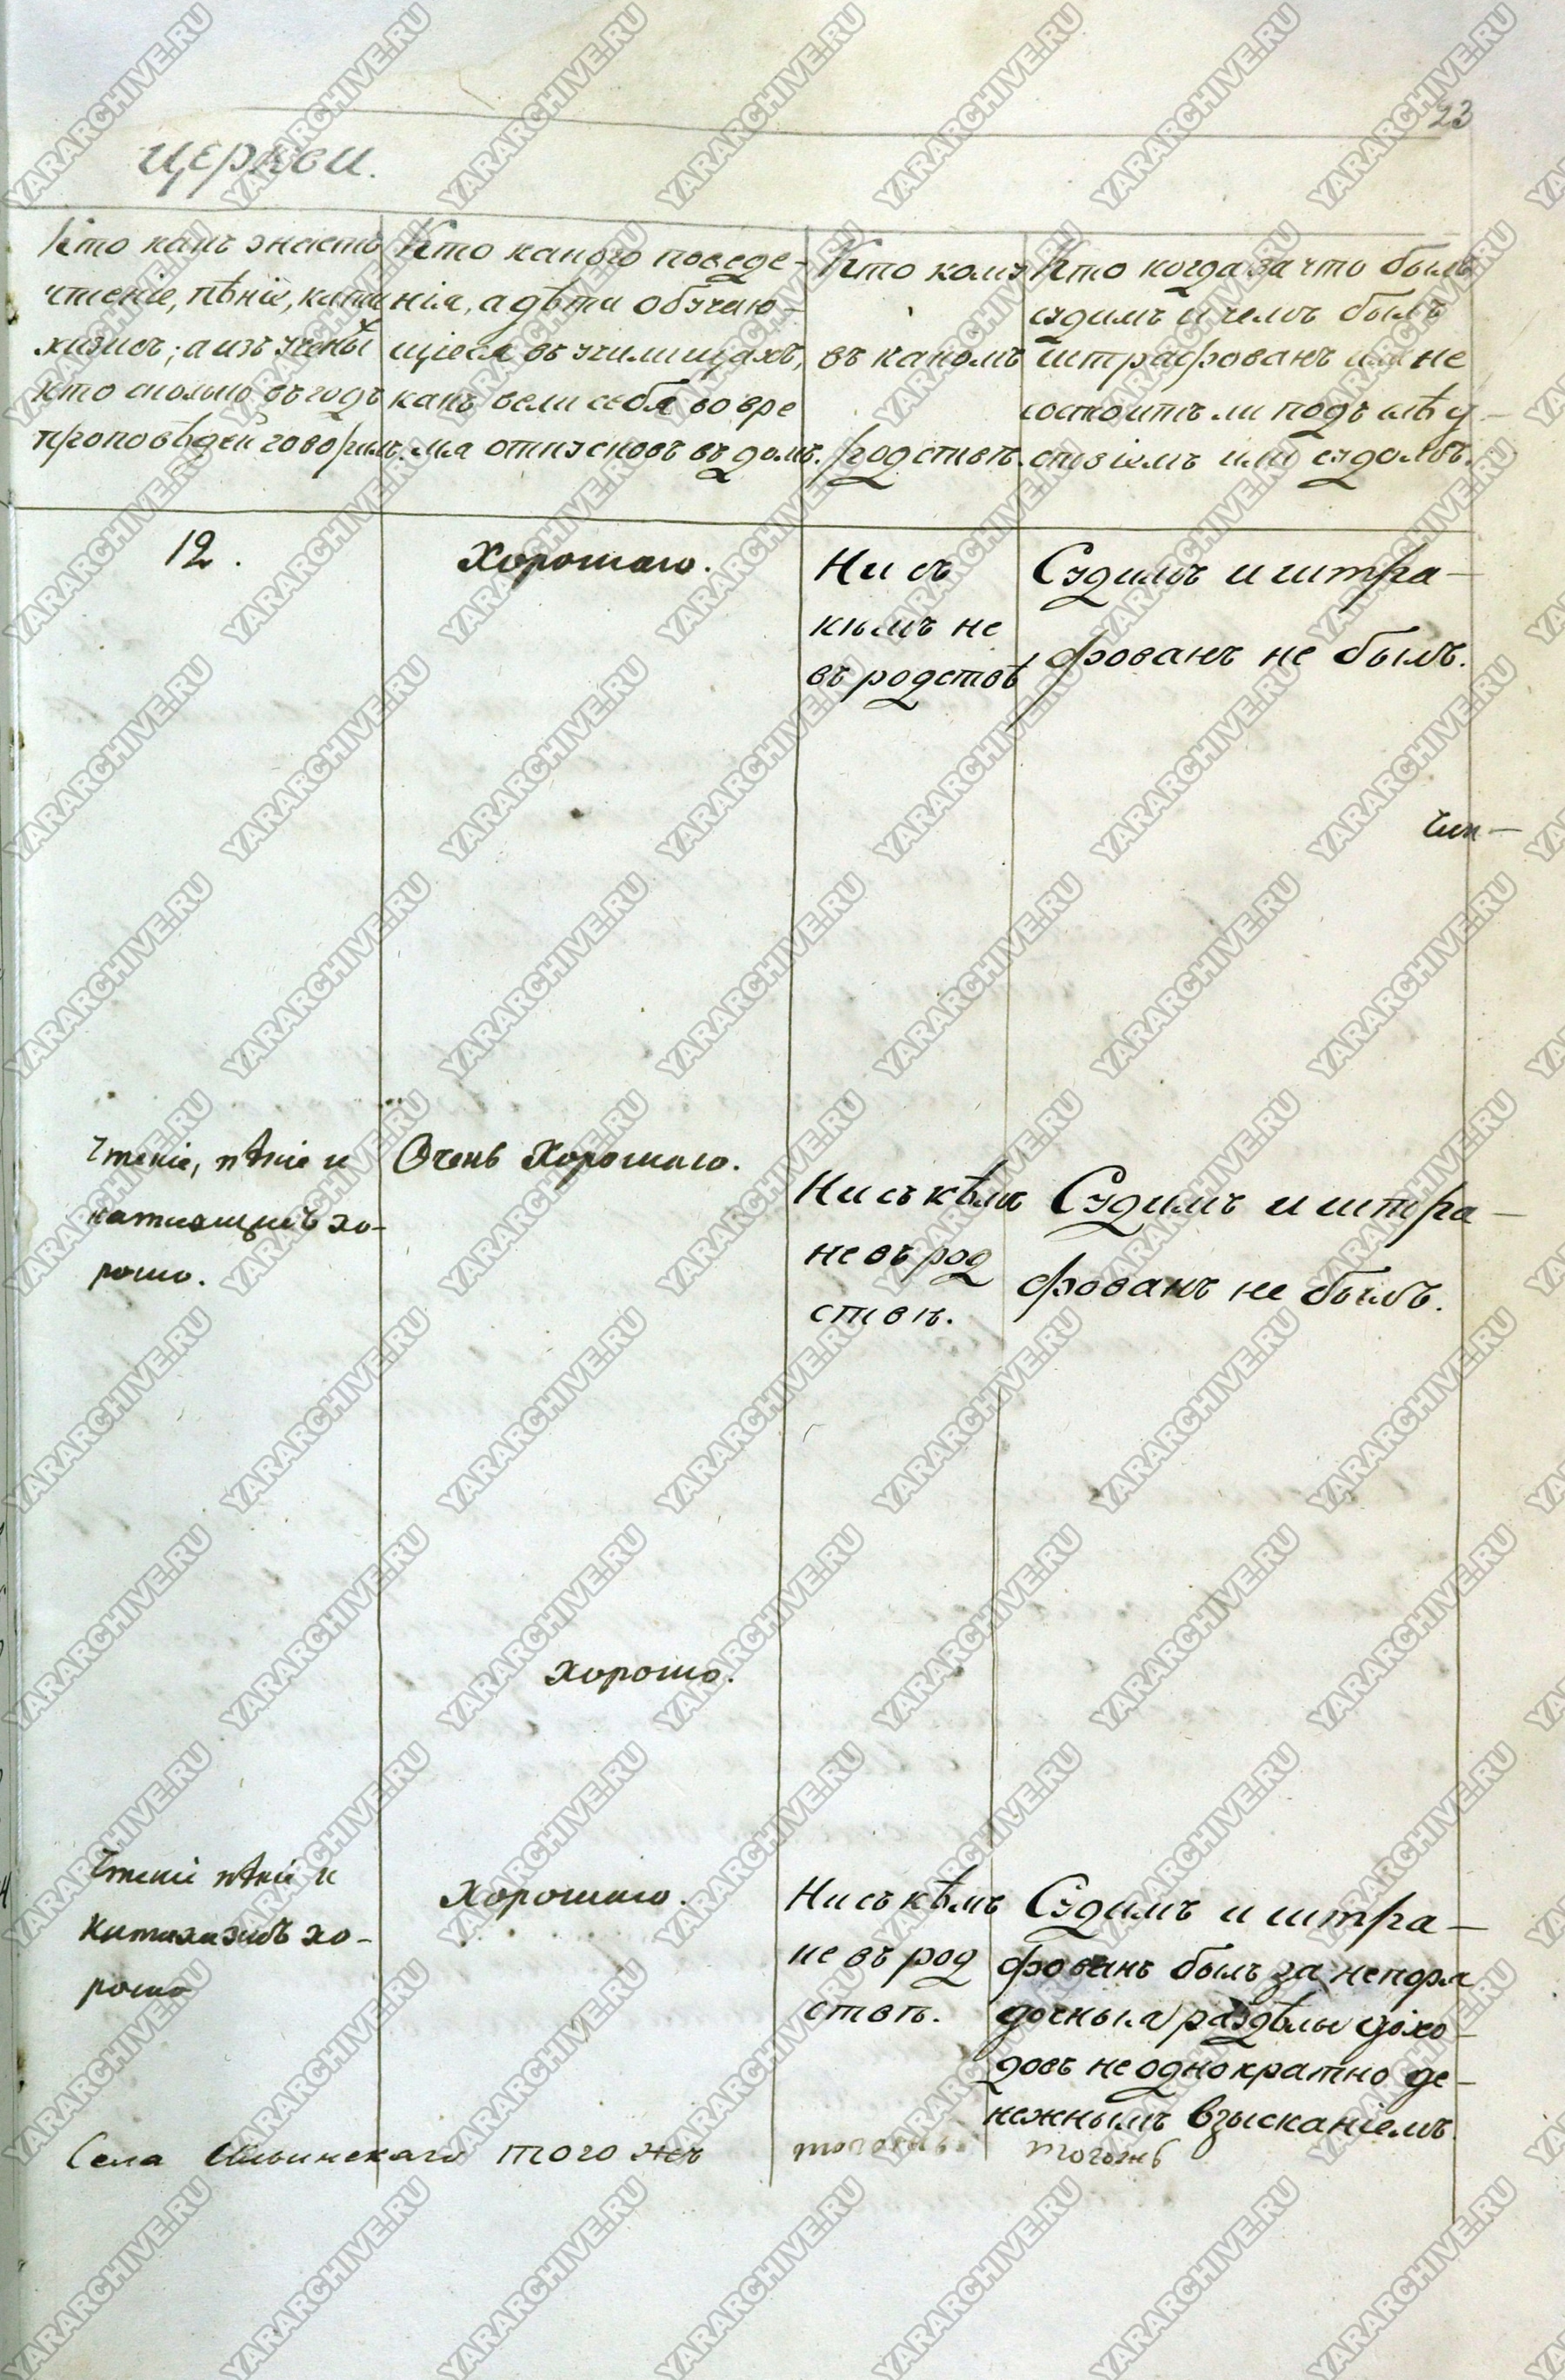 23
церкви.
Кто какъ знаетъ
чтенiе, пѣнiе, кати
хизисъ; а изъ учены
кто сколько въ годъ
проповѣдей говорилъ.
Кто какого поведе-
нiя, а дѣти обучаю-
щiеся въ училищахъ,
какъ вели себя во вре
мя отпусковъ въ домъ.
Кто кому
въ какомъ
родствѣ.
Кто когда за что былъ
судимъ и чемъ былъ
штрафованъ или не
состоитъ ли подъ слѣд-
ствiемъ или судомъ.
12.
Хорошаго.
Ни съ
кымъ не
въ родствѣ
Судимъ и штра-
фованъ не былъ.
Чтенiе, пѣнiе и
катихизисъ хо-
рошо.
Очень Хорошаго.
Ни съ кѣмъ
не въ род
ствѣ.
Судимъ и штра-
фованъ не былъ.
Хорошо.
Чтенiе пѣнiе и
Катихизисъ хо-
рошо
Хорошаго.
Ни съ кѣмъ
не въ род
ствѣ.
Судимъ и штра-
фованъ былъ за непоря
дочныя раздѣлы дохо-
довъ неоднократно де-
нежнымъ взысканiемъ
Села Ильинскаго того жъ
YARARCHIVE.RU